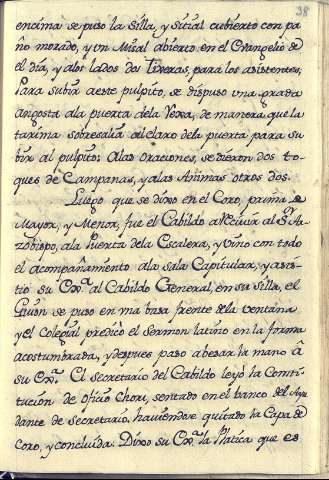 38
encima se puso la Silla, y Sitial cubierto con pa
ño morado, y un Misal abierto en el Evangelio de
el dia, y alos lados dos tixeras, para los asistentes,
Para subir aeste pulpito, se dispuso una grada
angosta ala puerta dela Rexa, de manera, que la
tarima sobresalia al claro dela puerta para su
bir al pulpito: Alas oraciones, se dieron dos to
ques de Campanas, y alas Animas otros dos.
Luego que se dixo en el Coro, prima de
Mayor, y Menor, fue el Cabildo a Recivir al Sr. Ar
zobispo, ala Puerta dela Escalera, y vino con todo
el acompañamiento ala sala Capitular, y asis
tio su Exa. al Cabildo General, en su silla, el
Guion se puso en una basa frente dela ventana
y el Colegial predicó el Sermon latino en la forma
acostumbrada, y despues paso abesar la mano â
su Exa. El Secretario del Cabildo leyò la Consti
tucion de oficio Chori, sentado en el banco del Ayu
dante de Secretario, haviendose quitado la Capa de
Coro, y concluida. Dixo su Exa. la Platica que es